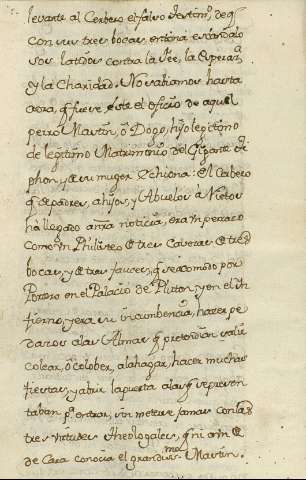 levante al Cerbero el falso testim.º de q̃
con sus tres bocas entona escandalo
sos latidos contra la Fee, la Esperan
y la Charidad. No sabiamos hasta
aora, q̃ fuese este el oficio de aquel
perro Mastin, ô Dogo, hijo legitimo
de legitimo Matrimonio del Gigante
phon, y su muger Echiona: El Cerbero
q̃ de padres, a hijos, y Abuelos à Nietos
hà llegado a nrã noticia, era un perraco
como un Philisteo de tres Caveras de tres
bocas, y de tres fauces, q̃ se acomodò por
Portero en el Palacio de Pluton, y en el in
fierno, y era su incumbencia, hacer pe
dazos a las Almas q̃ pretendian salir
colear, ô colober, alahagar, hacer muchas
fiestas, y abrir la puerta a las q̃ se presen
taban p.ª entrar, sin meterse jamas con las
tres virtudes theologales, q̃ ni aun
de Cara conocia el grandis.mo Mastin.